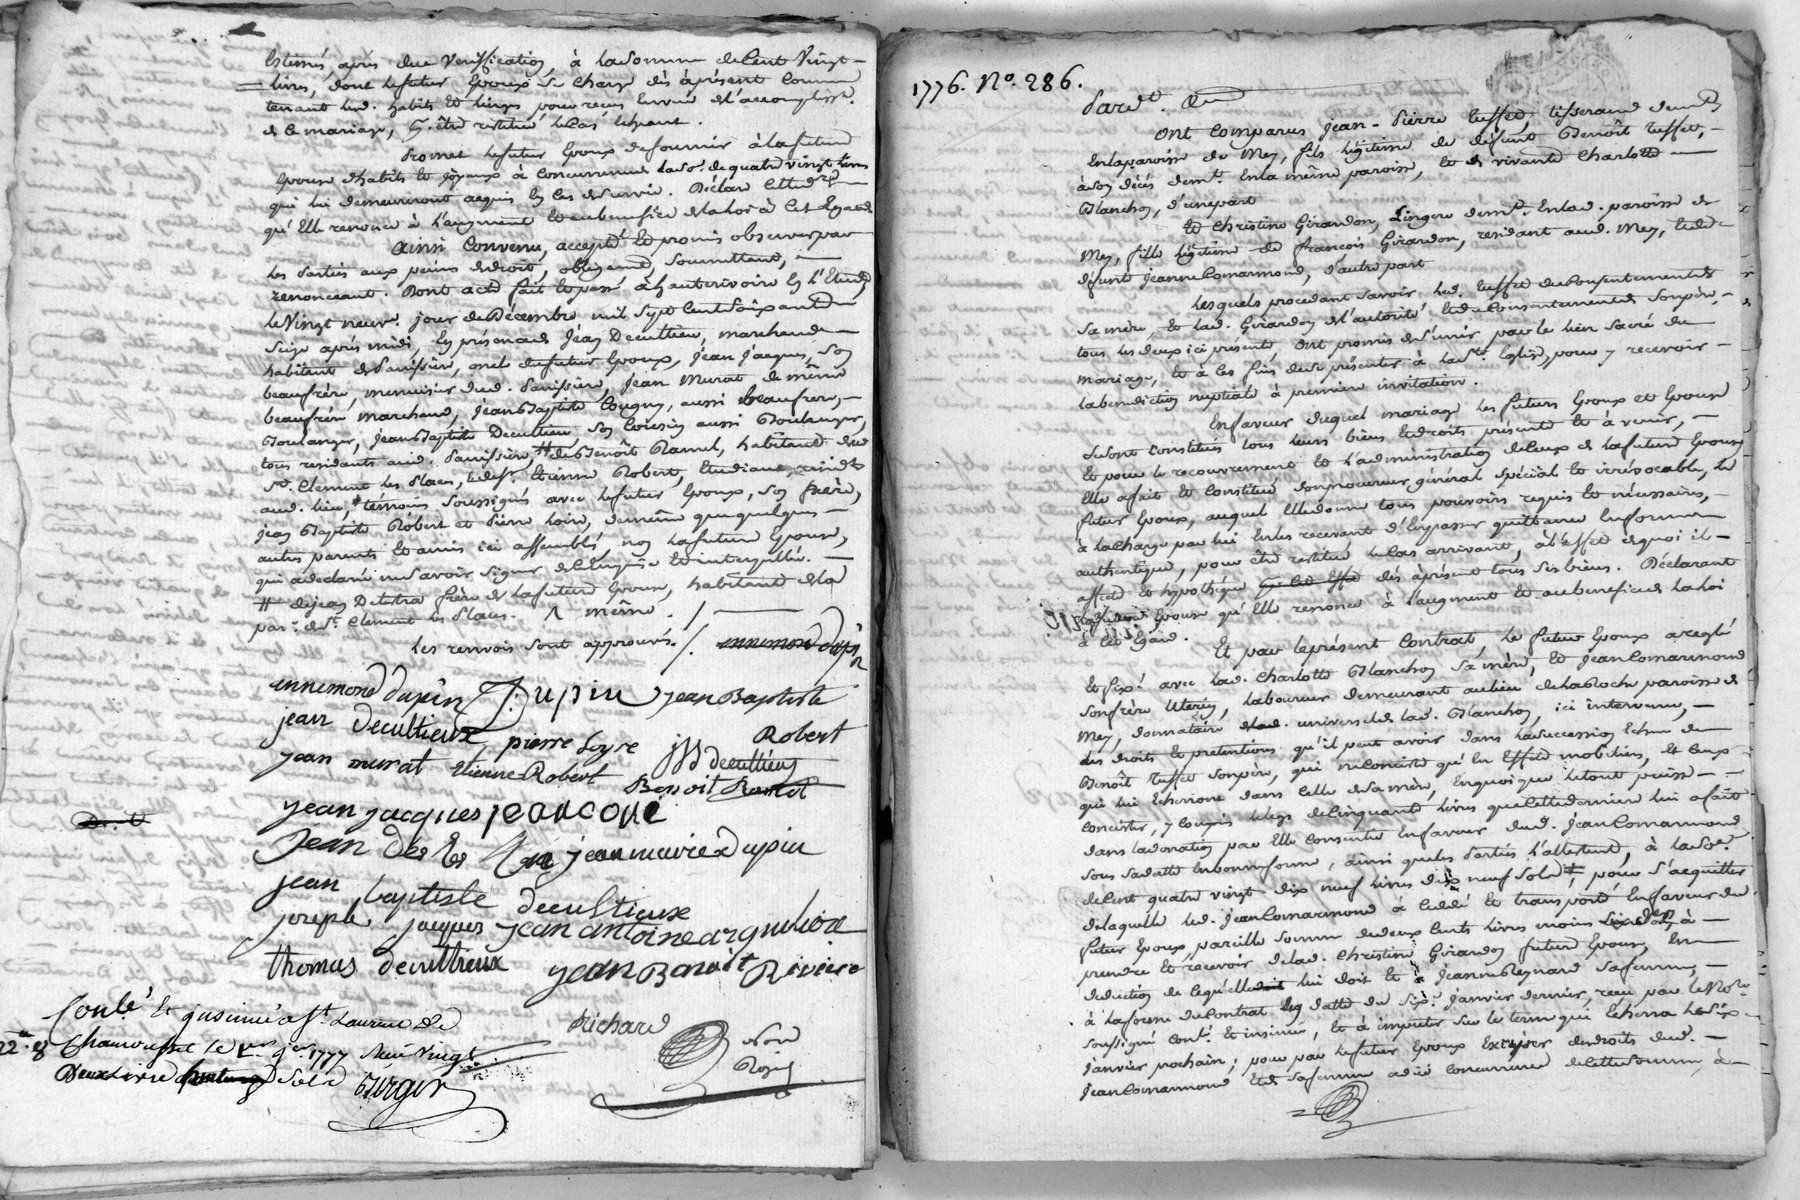 Estimés après due vérification, à la somme de Cent Vingt
livres, dont le futur Epoux se charge dès àprésent Comme
tenant lesd. habits et linges pour reçus Envüe de l'accompliss.t
de ce mariage, être restitué le cas échéant.
Promet le futur Epoux de fournir à la future
Epouse d'habits et joyaux à concurrence de la so. de quatre vingt livres
qui lui demeureront acquis En Cas de survie. Déclare
qu'Elle renonce à l'augment et au benefice de la loi à Cet Egard
Ainsi Convenu, accepté et promis observer par
les Parties aux peines de droit, obligeant, Soumettant,
renonceant. Dont acte fait et passé à hauterivoire En l'Etude
le Vingt neuv. jour de Décembre mil Sept Cent Soixante
Seize après midi En présence de Jean Decultieux, marchand
habitant de Panissière, oncle du futur Epoux, Jean Jacques, Son
beaufrère, menuisier dud. Panissière, Jean Murat de même
beaufrère marchand, Jean Baptiste Cougny, aussi beaufrere,
Boulanger, Jean Baptiste Decultieu Son Cousin aussi Boulanger,
tous residants aud. Panissière, # de Benoît Ramel, habitant dud
St. Clement les Places, et de Sr. Etienne Robert, Etudiant, resid.t
aud. lieu, témoins Soussignés avec le futur Epoux, Son frère,
Jean Baptiste Robert et Pierre Loire, de même que quelques
autres parents et amis ici assemblés non la future Epouse,
qui a declaré ne Savoir Signer de Enquise et interpellée.
# de Jean Detestra frère de la future Epouse, habitant de la
par. de St. Clement les Places. ^ même. /
les renvois sont approuvés. /. ennemond dupin
ennemond dupin J. Dupin jean Baptiste
jean decultieux pierre Loyre Robert
jean murat Etienne Robert JB decultieux
Benoit Ramel
jean jacques jean cogne
jean des jean marie dupin
jean baptiste decultieux
joseph jacques jean antoine arquilion
thomas decultieux jean Benoit Riviere
Conlé. et insinué à St. Laurent de
Chamousset le 1er. jer. 1777 Reçu Vingt
Deux livre Sols
Richard
Not
Royal
1776. No. 286.
Pardt. &c
Ont Comparus Jean-Pierre Tuffet, tisserand dem.t
En la paroisse de Mey, fils légitime de défunt Benoît Tuffet,
à son décès dem.t En la même paroisse, et de vivante Charlotte
Blanchon, d'une part
Et Christine Girardon, Lingere dem.t En lad. paroisse de
Mey, fille légitime de françois Girardon, residant aud. Mey, et de
défunte Jeanne Comarmond, d'autre part
Lesquels procedant Savoir led. Tuffet du Consentement de
Sa mère, et lad. Girardon de l'autorité et du Consentement de Son père,
tous les deux ici présents, Ont promis de s'unir par le lien Sacré du
mariage, et à Ces fins de se présenter à la Ste. Eglise, pour y recevoir
la benediction nuptiale à première invitation.
En faveur duquel mariage les futurs Epoux et Epouse
Se Sont Constitués tous leurs biens et droits présents et à venir,
Et pour le recouvrement et l'administration de Ceux de la future Epouse
Elle a fait et Constitué Son procureur général Spécial et irrévocable, le
futur Epoux, auquel Elle donne tous pouvoirs requis et nécessaires,
à la charge par lui En les recevant d'En passer quittance En forme
authentique, pour être restitué le Cas arrivant, à l'effet de quoi il
affecte et hypothéque dès àprésent tous Ses biens. Déclarant
la future Epouse qu'Elle renonce à l'augment et au benefice de la loi
à Cet Egard.
Et par le présent Contrat, le futur Epoux a réglé
Et fixé avec lad. Charlotte Blanchon Sa mère, et Jean Comarmond
Son frère Uterin, laboureur demeurant au lieu de la Roche paroisse de
Mey, donnataire universel de lad. Blanchon, ici intervenu,
les droits Et pretentions qu'il peut avoir dans la Succession Echue de
Benoît Tuffet Son père, qui ne Consiste qu'En Effets mobiliers, et Ceux
qui lui Echeront dans Celle de Sa mère, En quoi que le tout puisse
Consister, y Compris le legs de Cinquante livres que Cette derniere lui a fait
dans la donation par Elle Consentie En faveur dud. Jean Comarmond
Sous Sa datte En bonne forme, ainsi que les Parties l'attestent, à la So.e
de Cent quatre vingt dix neuf livres dix neuf Sols, pour S'acquitter
de laquelle led. Jean Comarmond a Cédé et transporté En faveur du
futur Epoux, pareille Somme de deux Cents livres moins à
prendre et recevoir de lad. Christine Girardon future Epouse, En
deduction de Ce qu'Elle lui doit Et à Jeanne Reynard Sa femme,
à la forme du Contrat En datte du Six. Janvier dernier, reçu par le No.re
Soussigné Conlé. Et insinué, Et à imputer Sur le terme qui Echerra le Six
Janvier prochain; pour par le futur Epoux Exciper des droits dud.
Jean Comarmond Et de Sa femme à due Concurrence de Cette Somme, à